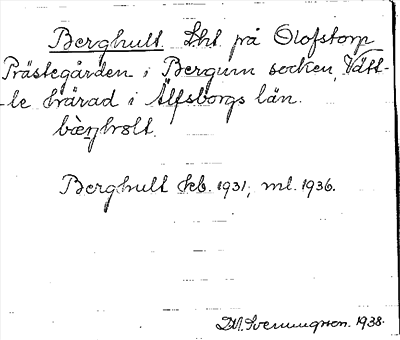 Berghult. Lht. på Olofstorp
Prästegården i Bergum socken, Vätt-
-le härad i Älfsborgs län.
bæ̀rjhɷlt.
Berghult Kb. 1931, ml. 1936.
Svenungsson. 1938.